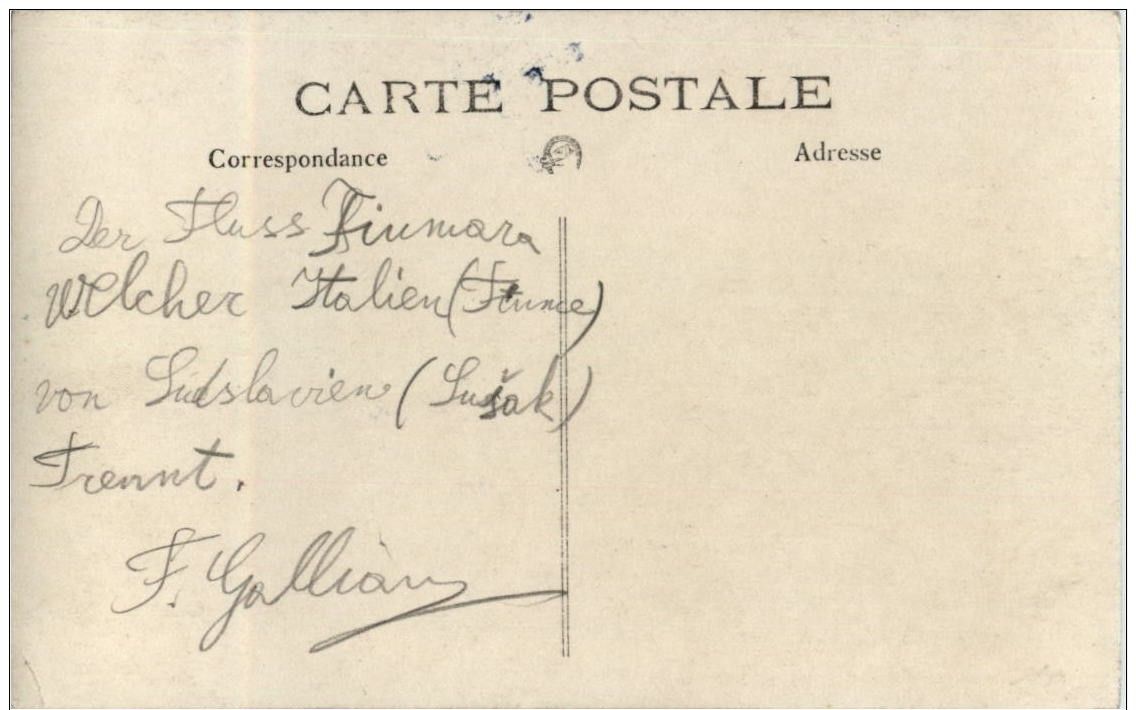 CARTE POSTALE
Correspondance
Adresse
Der Fluss Fiumara
Welcher Italien (Fiume)
von Südslavien (Sušak)
Trennt.
F.